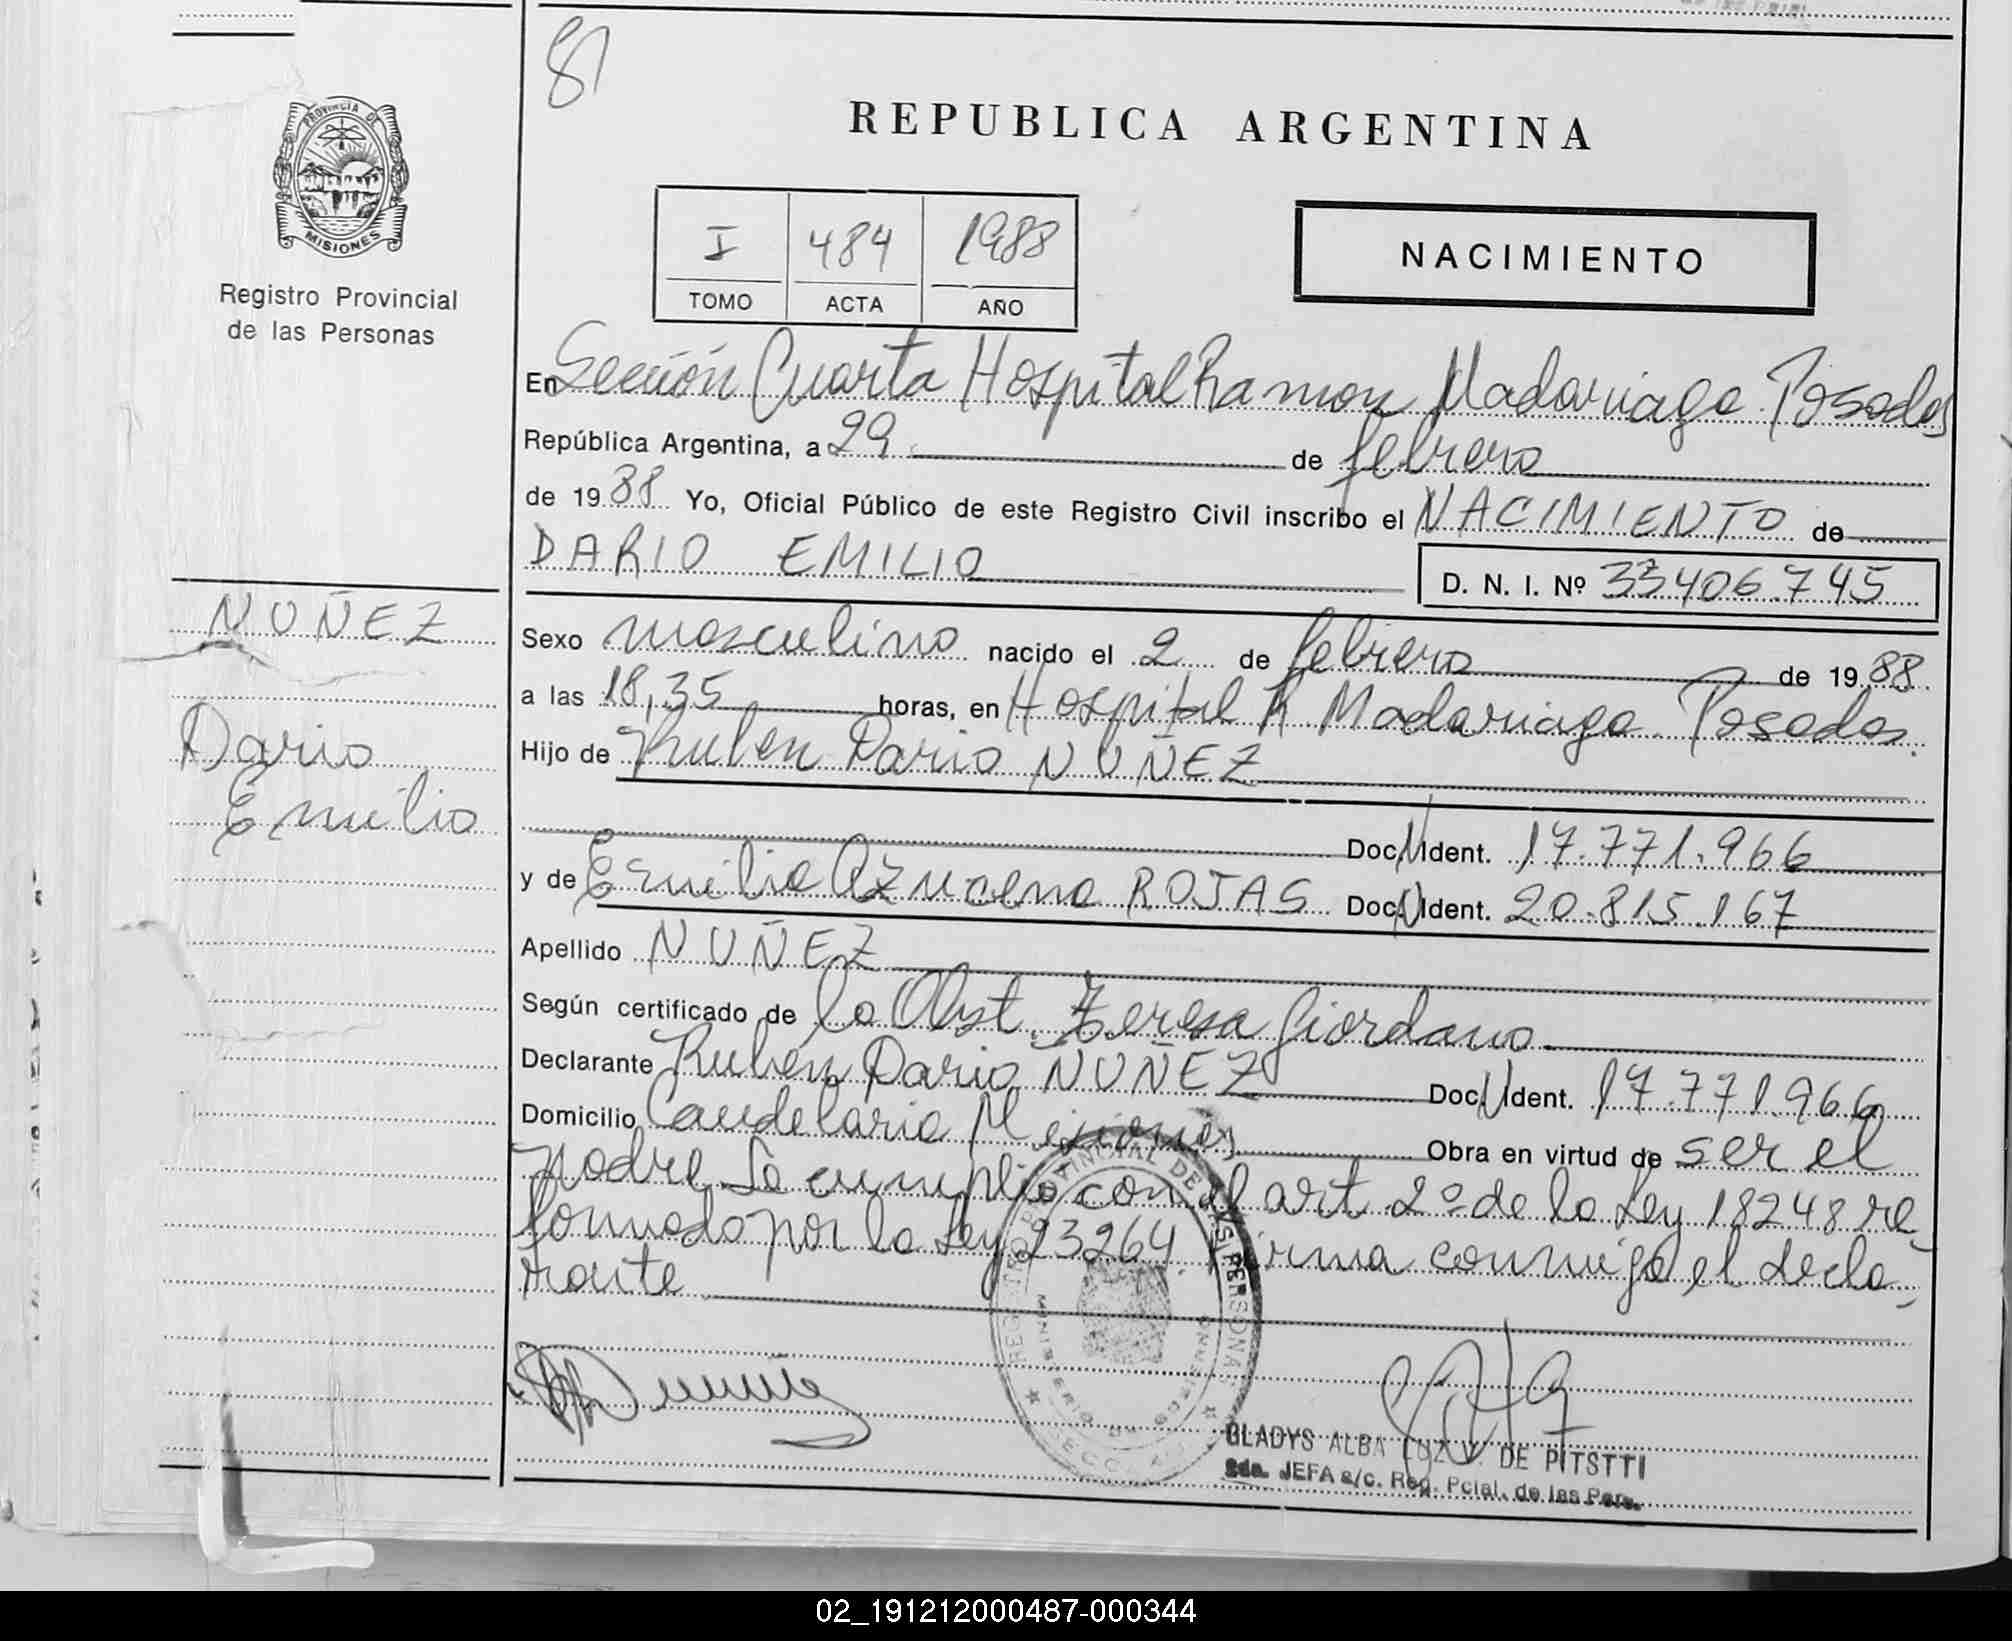 81
PROVINCIA DE
MISIONES
Registro Provincial
de las Personas
REPUBLICA ARGENTINA
I 484 1988
TOMO ACTA AÑO
NACIMIENTO
En Sección Cuarta Hospital Ramon Madariaga. Posadas
República Argentina, a 29 de febrero
de 1988 Yo, Oficial Público de este Registro Civil inscribo el NACIMIENTO de
DARIO EMILIO
D. N. I. Nº 33406.745
NUÑEZ
Dario
Emilio
Sexo masculino nacido el 2 de febrero de 1988
a las 18,35 horas, en Hospital R. Madariaga. Posadas.
Hijo de Ruben Dario NUÑEZ
Doc. N. Ident. 17.771.966
y de Emilia Azucena ROJAS Doc. N. Ident. 20.815.167
Apellido NUÑEZ
Según certificado de la Obst. Teresa Giordano
Declarante Ruben Dario NUÑEZ Doc. N. Ident. 17.771.966
Domicilio Candelaria Misiones Obra en virtud de ser el
padre. Se cumplio con el art. 2º de la Ley 18248 re-
formada por la Ley 23264. Firma conmigo el decla-
rante
REGISTRO PROVINCIAL DE LAS PERSONAS
MINISTERIO DE GOBIERNO
GLADYS ALBA LUZ V. DE PITSTTI
2da. JEFA a/c. Reg. Pcial. de las Pers.
02_191212000487-000344